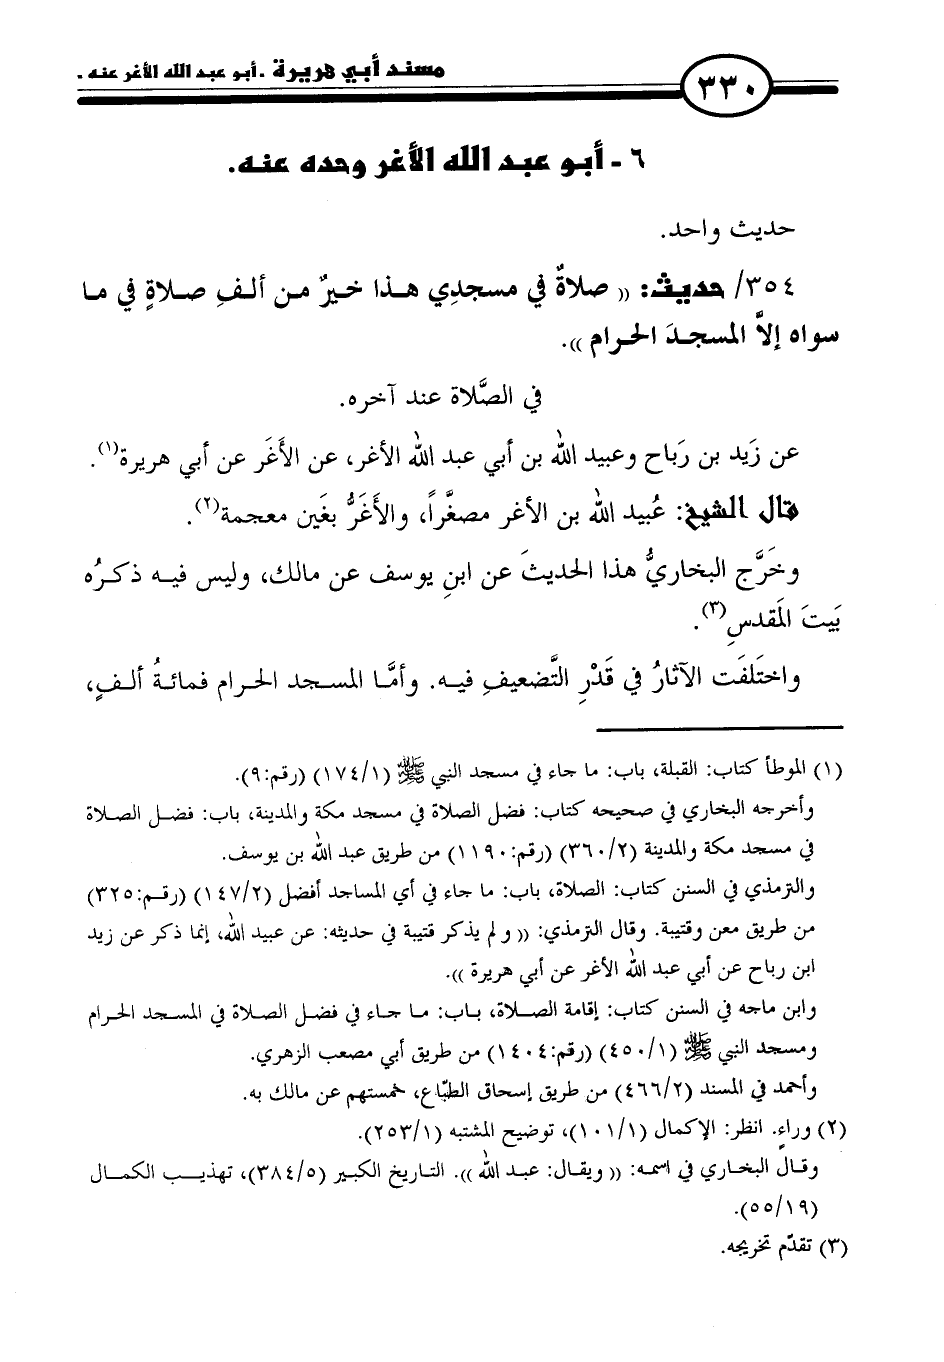 مسند أبي هريرة .أبو عبد الله الأغر عنه .
٣٣٠
٦ - أبو عبد الله الأغر وحده عنه.
حديث واحد.
٣٥٤/ حديث: (( صلاةٌ في مسجدِي هـذا خيرٌ مـن ألـفِ صـلاةٍ في مـا
سواه إلاَّ المسجـدَ الحـرام )).
في الصَّلاة عند آخره.
عن زَيد بن رَباح وعبيد الله بن أبي عبد الله الأغر، عن الأَغَر عن أبي هريرة(١).
قال الشيخ: عُبيد الله بن الأغر مصغَّراً، والأَغَرُّ بغَين معجمة(٢).
وخَرَّج البخاريُّ هذا الحديثَ عن ابنِ يوسف عن مالك، وليس فيـه ذكـرُه
بَيتَ المَقدسِ(٣).
واختَلَفَت الآثارُ في قَدْرِ التَّضعيفِ فيـه. وأمَّا المسـجد الحـرام فمـائـةُ ألـفٍ،
(١) الموطأ كتاب: القبلة، باب: ما جاء في مسجد النبي ﷺ (١٧٤/١) (رقم:٩).
وأخرجه البخاري في صحيحه كتاب: فضل الصلاة في مسجد مكة والمدينة، باب: فضـل الصـلاة
في مسجد مكة والمدينة (٣٦٠/٢) (رقم:١١٩٠) من طريق عبد الله بن يوسف.
والترمذي في السنن كتاب: الصلاة، باب: ما جاء في أي المساجد أفضل (١٤٧/٢) (رقـم:٣٢٥)
من طريق معن وقتيبة. وقال الترمذي: (( ولم يذكر قتيبة في حديثه: عن عبيد الله، إنما ذكر عن زيد
ابن رباح عن أبي عبد الله الأغر عن أبي هريرة )).
وابن ماجه في السنن كتاب: إقامة الصـلاة، بـاب: مـا جـاء في فضـل الصـلاة في المسـجد الحـرام
ومسجد النبي ﷺ (٤٥٠/١) (رقم:١٤٠٤) من طريق أبي مصعب الزهري.
وأحمد في المسند (٤٦٦/٢) من طريق إسحاق الطبّاع، خمستهم عن مالك به.
(٢) وراءٍ. انظر: الإكمال (١٠١/١)، توضيح المشتبه (٢٥٣/١).
وقـال البخاري في اسمـه: (( ويقـال: عبـد الله )). التـاريخ الكبير (٣٨٤/٥)، تهذيـب الكمـال
(٥٥/١٩).
(٣) تقدّم تخريجه.